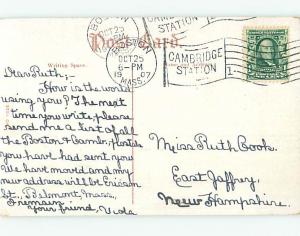 BOSTON
OCT 25
CAMBRIDGE
STATION
Post Card.
BOSTON
OCT 25
6-PM
1907
MASS.
CAMBRIDGE
STATION
1-
Writing Space.
Dear Ruth:-
How is the world
using you? The next
time you write, please
send me a list of all
the Boston & Camb. Postals
you have had sent you
We have moved and my
new address will be Ericson
St., Belmont, Mass.
I remain,
Your friend, Viola
Miss Ruth Cook.
East Jaffrey,
New Hampshire.